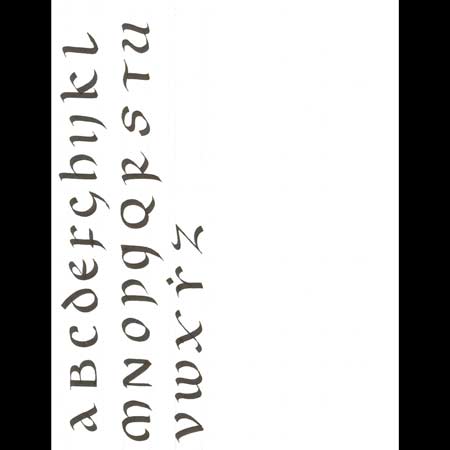 aBcdefghijkl
mNopqQRsTU
vwxŸz